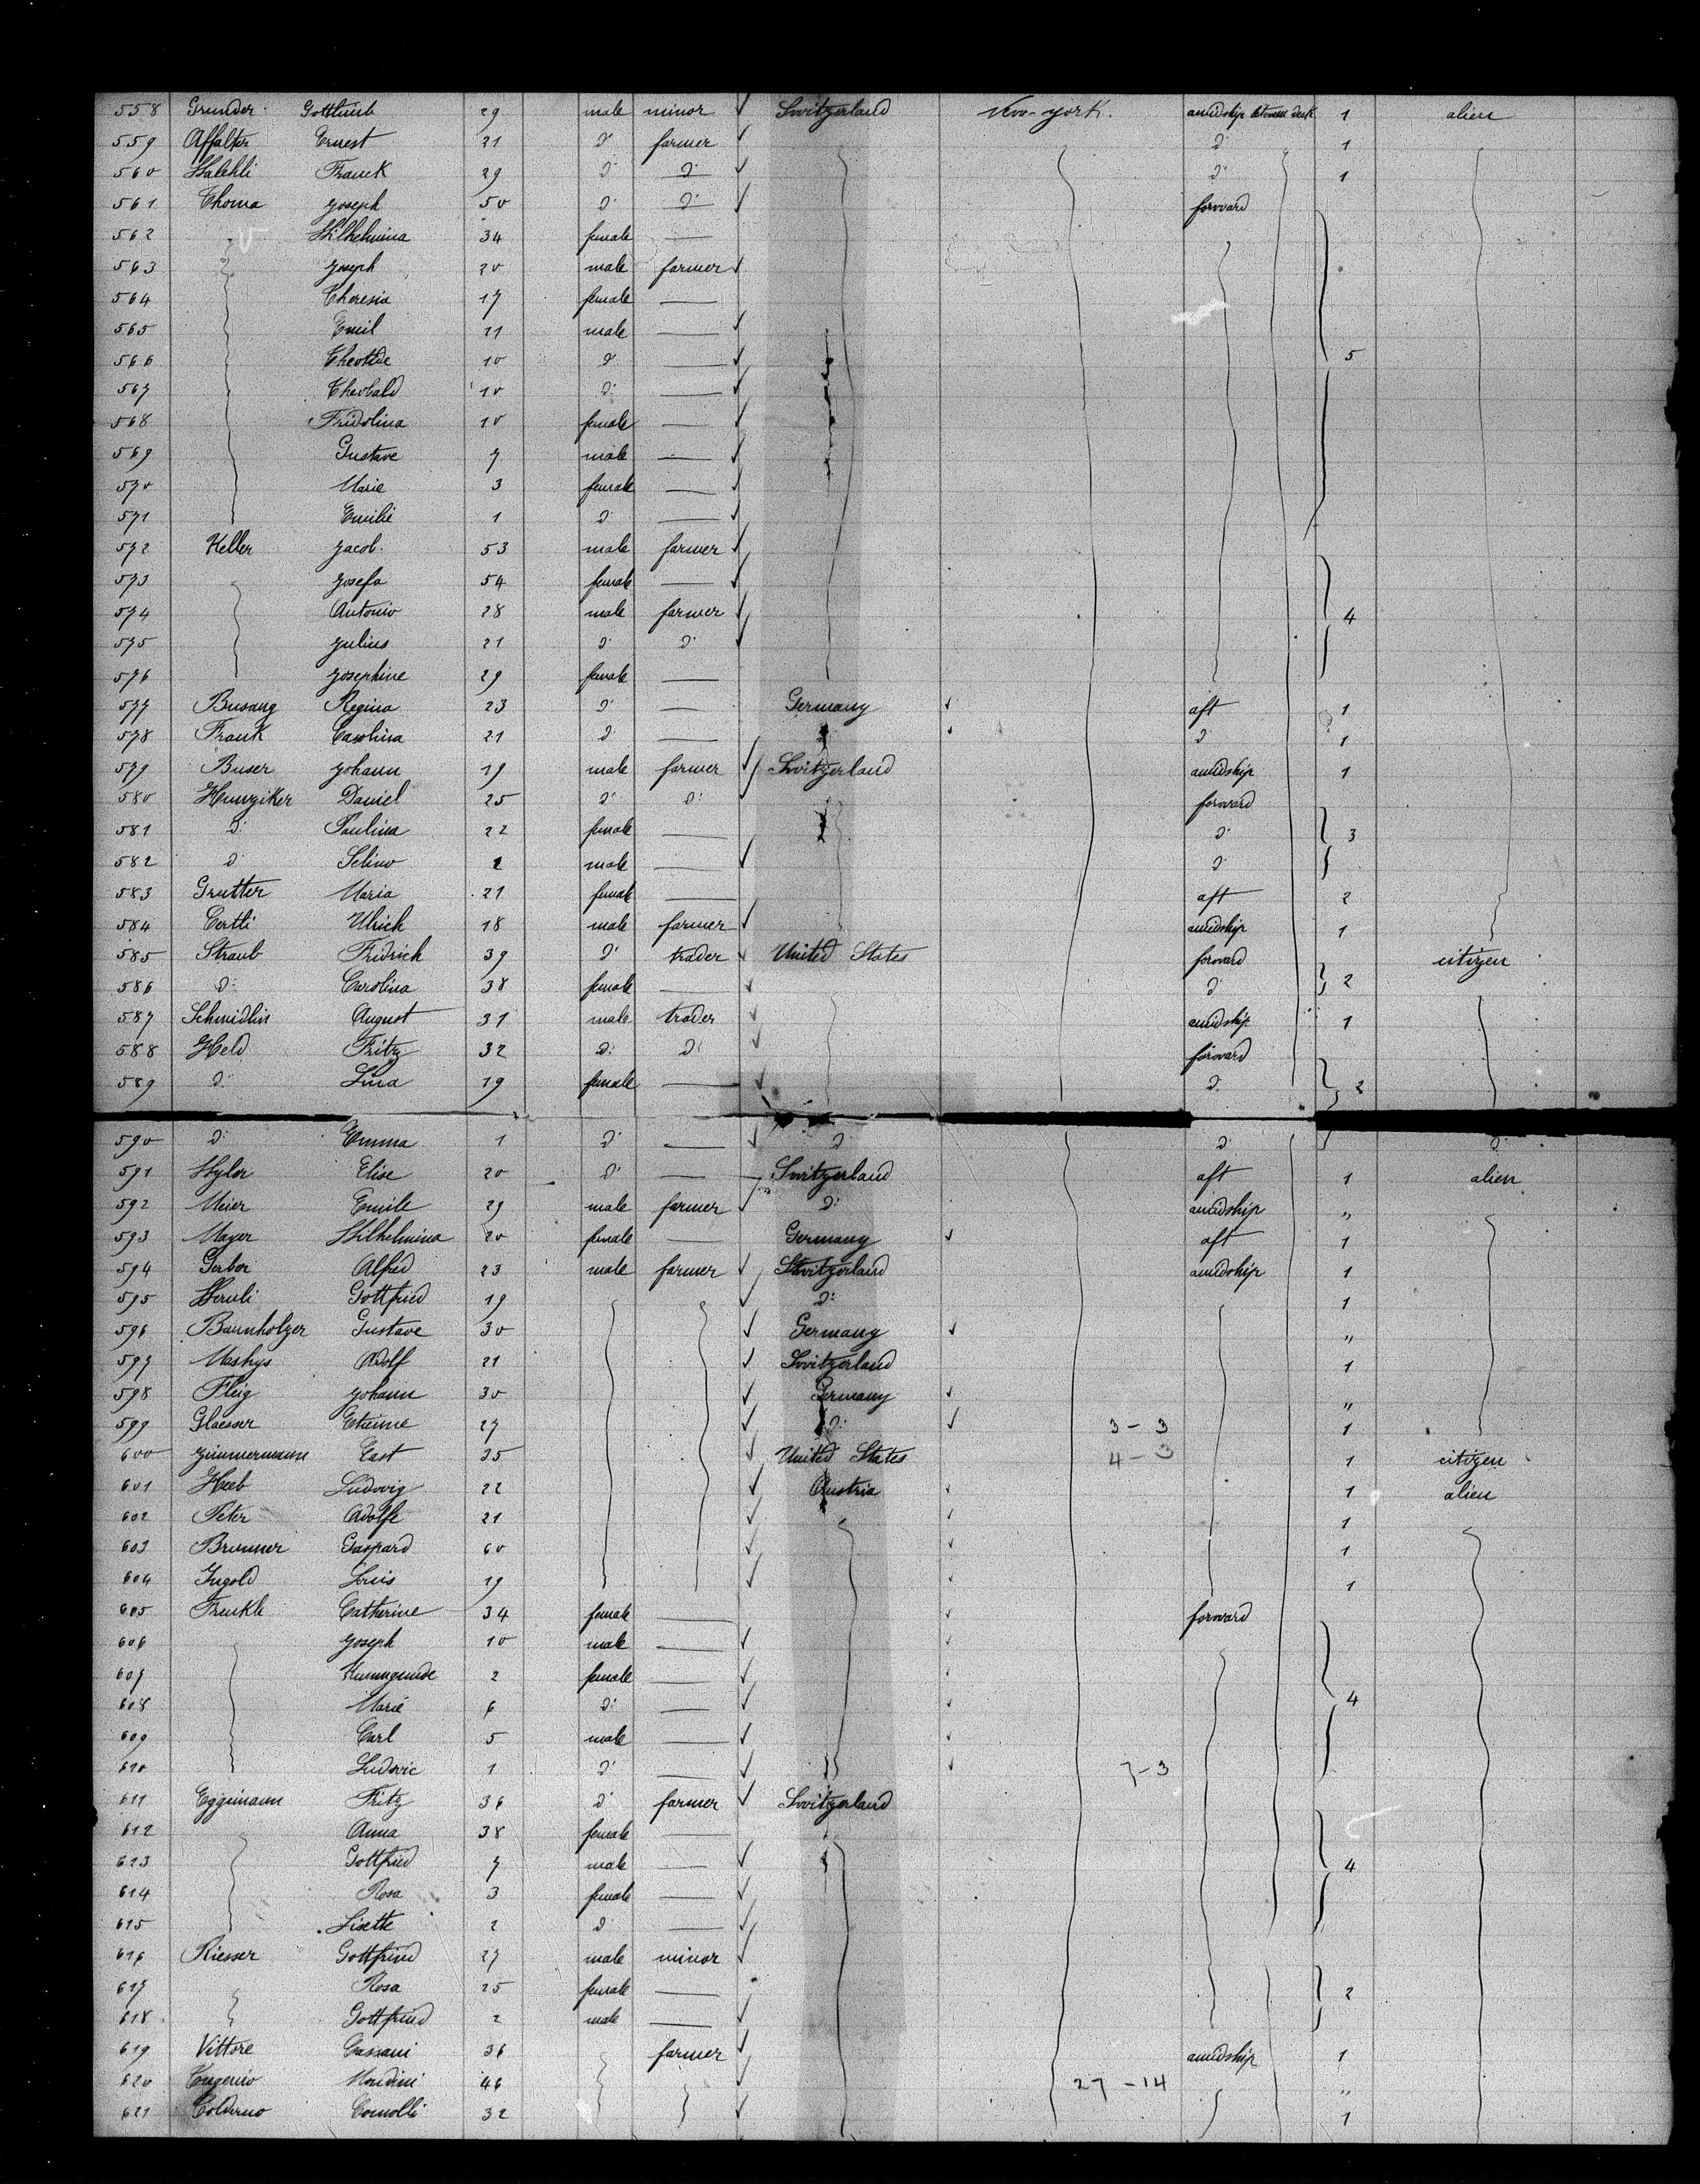 558 Grunder Gottlieb 29 male minor ✓ Switzerland New-york. amidship between deck 1 alien
559 Affalter Ernest 21 d° farmer ✓ d° 1
560 Franck 29 d° d° ✓ d° 1
561 Thoma Joseph 50 d° d° ✓ forward
562 " Wilhelmina 34 female —
563 Joseph 20 male farmer ✓
564 Theresia 17 female —
565 Emil 11 male — ✓
566 10 d° — ✓ 5
567 Theobald 10 d° — ✓
568 Fridolina 10 female — ✓
569 Gustave 7 male — ✓
570 Marie 3 female — ✓
571 Emilie 1 d° — ✓
572 Keller Jacob. 53 male farmer ✓
573 Josefa 54 female — ✓
574 Antonio 28 male farmer ✓ 4
575 Julius 21 d° d° ✓
576 Josephine 29 female —
577 Busang Regina 23 d° — Germany ✓ aft 1
578 Frank Carolina 21 d° — ✓ d° 1
579 Buser Johann 19 male farmer ✓ Switzerland amidship 1
580 Hunziker Daniel 25 d° d° ✓ forward
581 d° Paulina 22 female — d° 3
582 d° male — ✓ d°
583 Grutter Maria 21 female — aft 2
584 Oertli Ulrich 18 male farmer ✓ amidship 1
585 Straub Fridrich 39 d° trader ✓ United States forward citizen
586 d° Carolina 38 female — ✓ d° 2
587 Schmidlin August 31 male trader ✓ amidship 1
588 Held Fritz 32 d° d° ✓ forward
589 d° Lina 19 female — ✓ d° 2
590 d° Emma 1 d° — ✓ d° d° d°
591 Wyler Elise 20 d° — Switzerland aft 1 alien
592 Meier Emile 29 male farmer ✓ d° amidship "
593 Mayer Wilhelmina 20 female — Germany ✓ aft 1
594 Gerber Alfred 23 male farmer ✓ Switzerland amidship 1
595 Gottfried 19 ✓ d° 1
596 Baunholzer Gustave 30 ✓ Germany ✓ "
597 Mashys Adolf 21 ✓ Switzerland 1
598 Fleig Johann 30 ✓ Germany ✓ "
599 Glaesser Etienne 27 ✓ d° ✓ 3 - 3 1
600 Zimmermann East 35 ✓ United States 4 - 3 1 citizen
601 Heeb Ludovig 22 ✓ Austria ✓ 1 alien
602 Peter Adolfe 21 ✓ ✓ 1
603 Brunner Gaspard 60 ✓ ✓ 1
604 Ingold Louis 19 ✓ ✓ 1
605 Frenkle Catherine 34 female — ✓ forward
606 Joseph 10 male — ✓ ✓
607 2 female — ✓ ✓
608 Marie 6 d° — ✓ ✓ 4
609 Carl 5 male — ✓ ✓
610 Ludovic 1 d° — ✓ ✓ 7-3
611 Eggimann Fritz 36 d° farmer ✓ Switzerland
612 Anna 38 female —
613 Gottfried 7 male — ✓ 4
614 Rosa 3 female — ✓
615 Lisette 2 d° — ✓
616 Riesser Gottfried 27 male minor ✓
617 Rosa 25 female — 2
618 Gottfried 2 male — ✓
619 Vittore Cassani 36 farmer ✓ amidship 1
620 Eugenio 46 ✓ 27 - 14 "
621 Comolli 32 ✓ 1